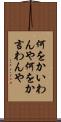 何をかいわ
んや何をか
言わんや